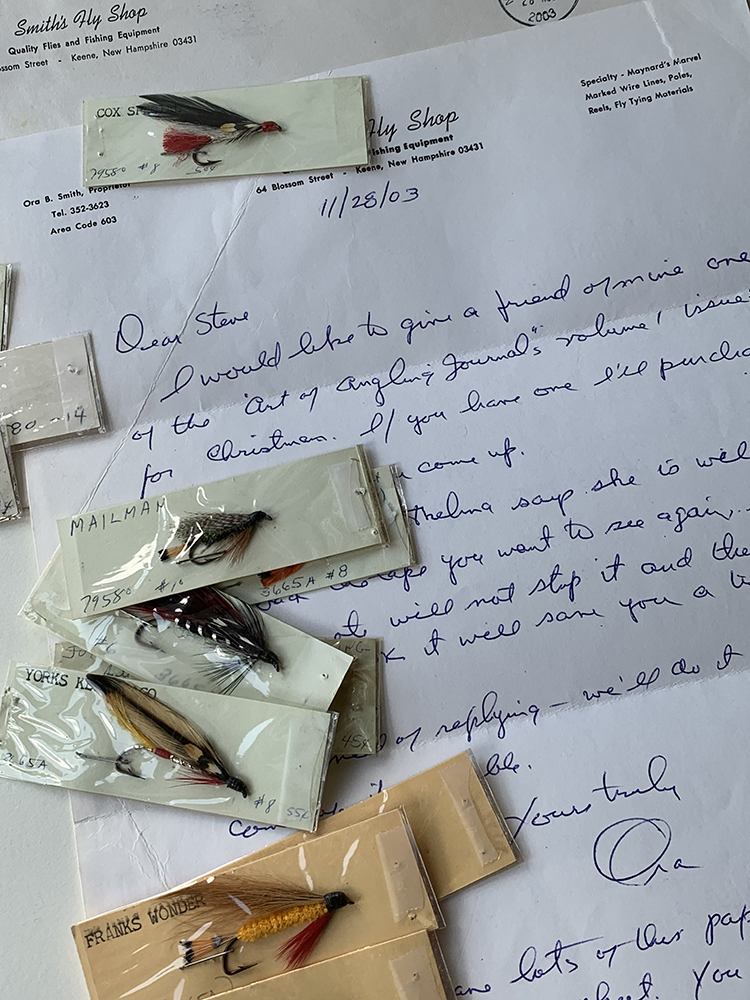 Smith's Fly Shop
Quality Flies and Fishing Equipment
ossom Street - Keene, New Hampshire 03431
2003
Specialty - Maynard's Marvel
Marked Wire Lines, Poles,
Reels, Fly Tying Materials
COX S
79580 #8 50¢
Fly Shop
ishing Equipment
64 Blossom Street - Keene, New Hampshire 03431
Ora B. Smith, Proprietor
Tel. 352-3623
Area Code 603
11/28/03
Dear Steve
I would like to give a friend of mine one
of the "Art of Angling Journal's" volume 1 issue
for Christmas. If you have one I'll purcha
come up.
80 -14
MAILMAN
79580 #10
3665A #8
thelma says she is wel
you want to see again.
will not stop it and the
it will save you a
#6
366
45¢
YORKS K GO
65A
#8 55¢
of replying - we'll do it
ble.
Yours truly
Ora
FRANKS WONDER
lots of this pap
You